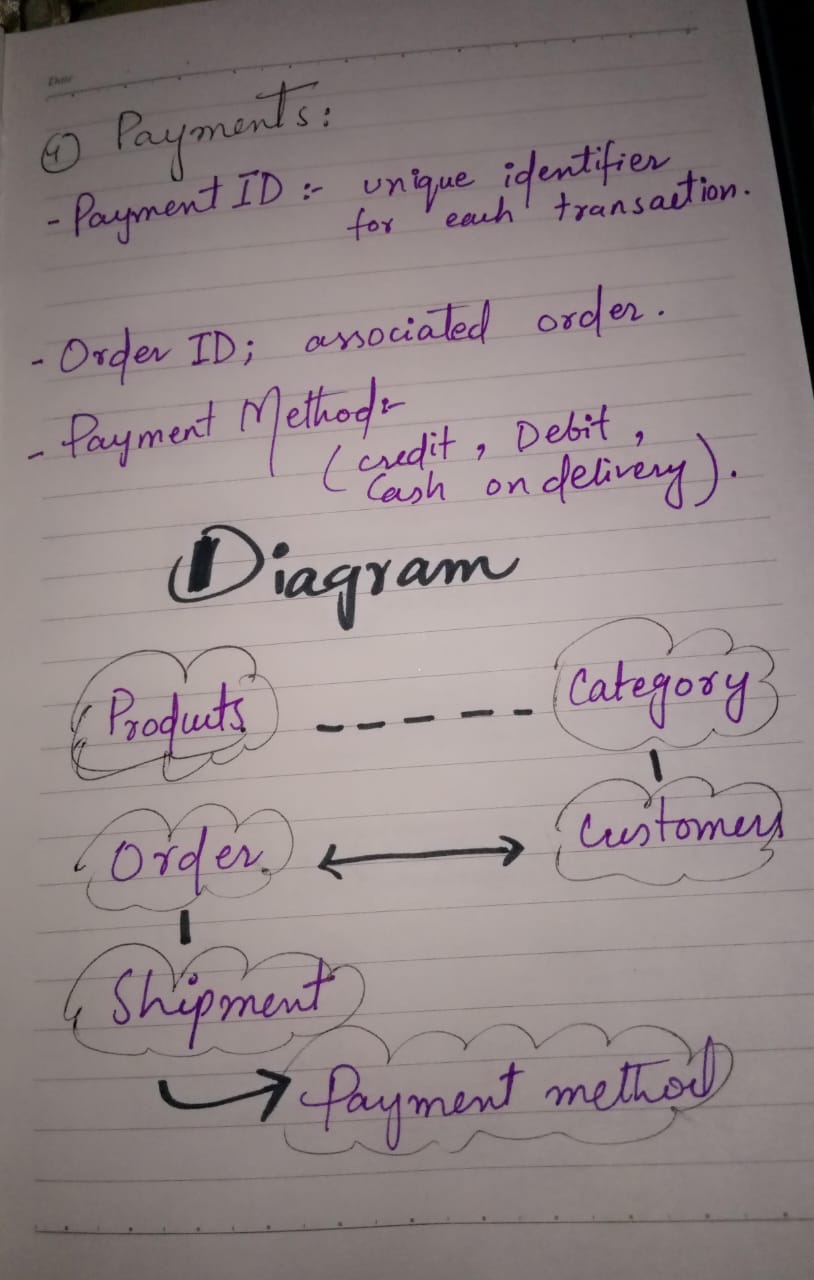 Date
④ Payments:
- Payment ID :- unique identifier
for each transaction.
- Order ID; associated order.
- Payment Method:-
(credit, Debit,
Cash on delivery).
Diagram
Products Category
Order Customers
Shipment
Payment method